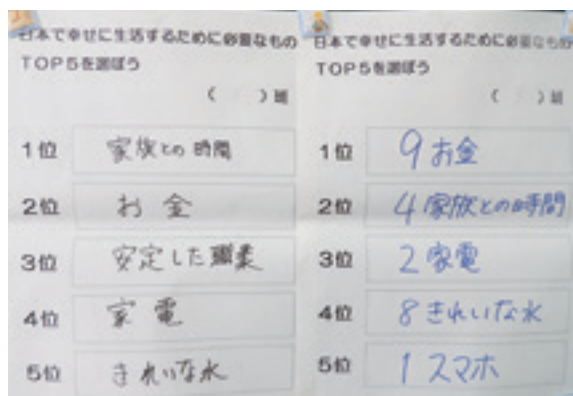 日本で幸せに生活するために必要なもの
TOP5を選ぼう
( )班
1位 家族との時間
2位 お金
3位 安定した職業
4位 家電
5位 きれいな水
日本で幸せに生活するために必要なもの
TOP5を選ぼう
( )班
1位 9 お金
2位 4 家族との時間
3位 2 家電
4位 8 きれいな水
5位 1 スマホ